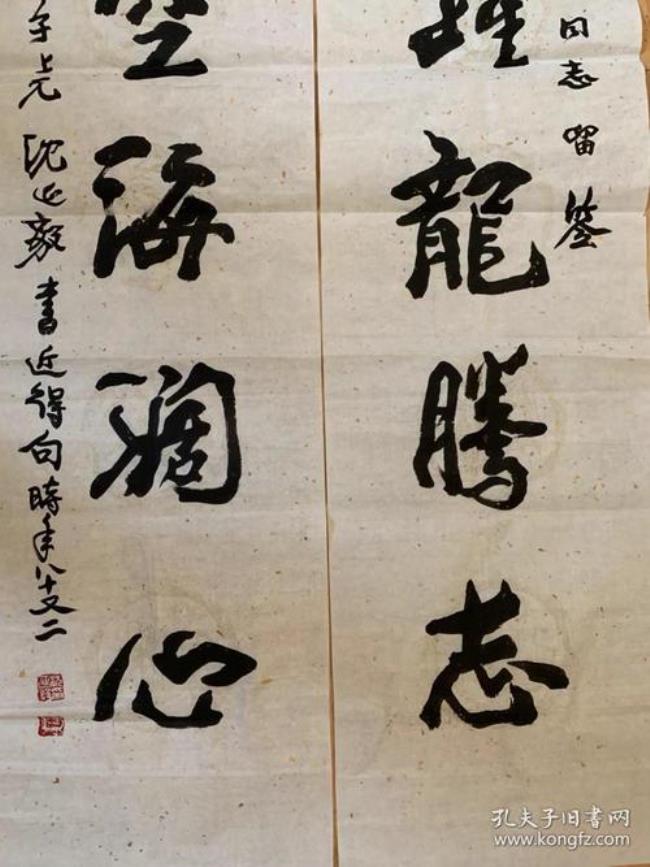 同志留鉴
龍騰志
空海闊心
子上元 沈延毅書近得句時年八十又二
孔夫子旧书网
www.kongfz.com